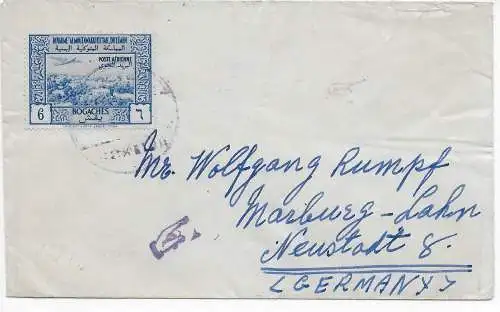 ROYAUME ALMOUTAWAKKILITE DU YEMEN
المملكة المتوكلية اليمنية
POSTE AÉRIENNE
البريد الجوي
6 BOGACHES ٦
بقش
Mr. Wolfgang Rumpf
Marburg-Lahn
Neustadt 8.
(GERMANY)